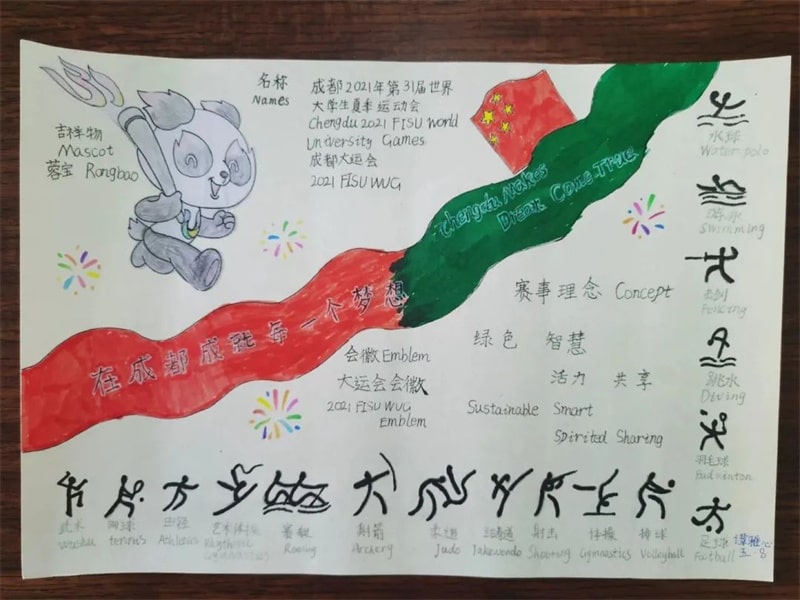 名称
Names
成都2021年第31届世界
大学生夏季运动会
Chengdu 2021 FISU World
University Games
成都大运会
2021 FISU WUG
吉祥物
Mascot
蓉宝 Rongbao
Chengdu Makes
Dream Come True
在成都成就每一个梦想
会徽 Emblem
大运会会徽
2021 FISU WUG
Emblem
赛事理念 Concept
绿色 智慧
活力 共享
Sustainable Smart
Spirited Sharing
水球
Water polo
游泳
Swimming
击剑
Fencing
跳水
Diving
羽毛球
Badminton
足球
Football
武术
Wushu
网球
tennis
田径
Athletics
艺术体操
Rhythmic
Gymnastics
赛艇
Rowing
射箭
Archery
柔道
Judo
跆拳道
Taekwondo
射击
Shooting
体操
Gymnastics
排球
Volleyball